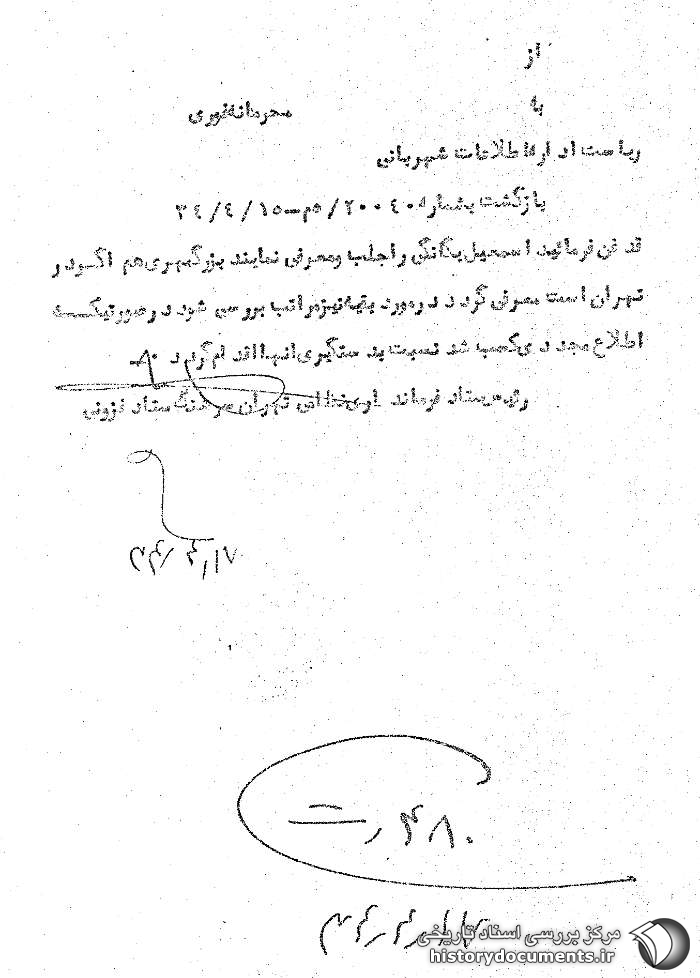 از
به
محرمانه فوری
ریاست اداره اطلاعات شهربانی
بازگشت بشماره ۲۰۰۴۰۵/م۵–۳۴/۴/۱۵
قدغن فرمائید اسمعیل یگانگی را جلب و معرفی نمایند بزرگمهری هم اگر در
تهران است معرفی گردد در مورد بقیه نیز مراتب بررسی شود در صورتیکه
اطلاع مجددی کسب شد نسبت بدستگیری انها اقدام گردد
رئیس ستاد فرمانداری نظامی تهران سرهنگ ستاد
۳۴/۴/۱۷
۴۸۰
۳۴/۴/۱۷
مرکز بررسی اسناد تاریخی
historydocuments.ir